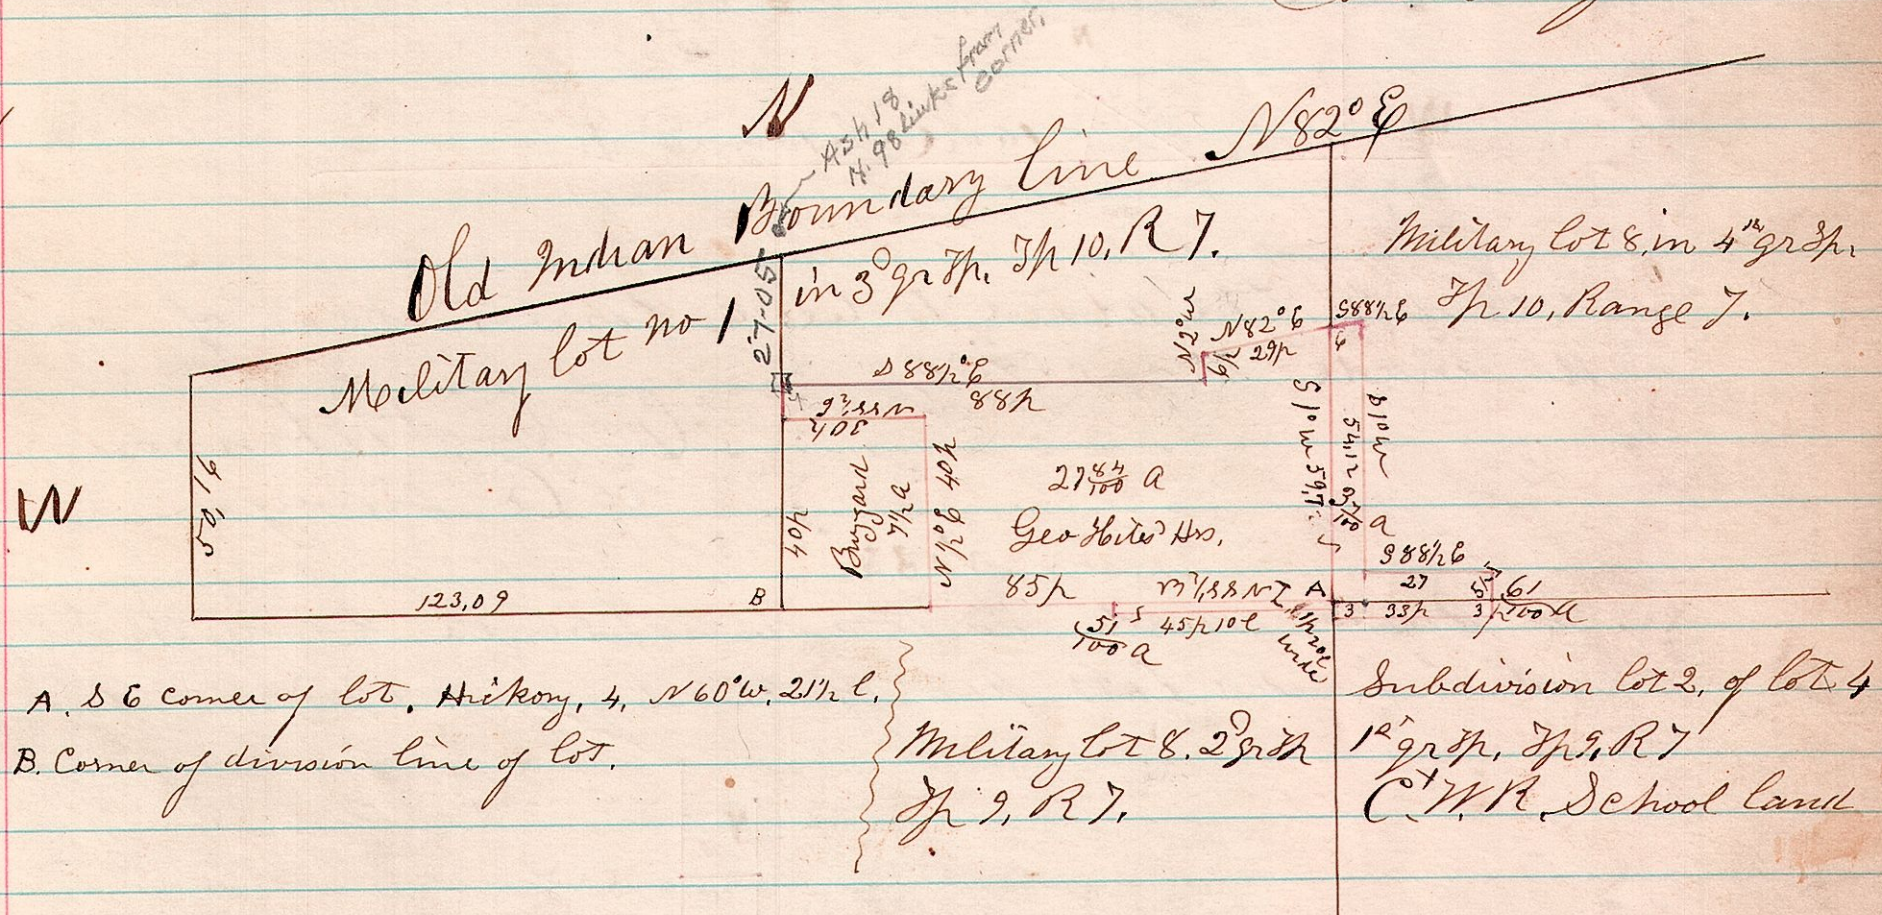 N
Ash 18
N. 98 links from
corner.
Old Indian Boundary line N82°E
Military lot no 1 in 3d gr Tp. Tp 10, R 7.
Military lot 8, in 4th gr Tp.
Tp 10, Range 7.
27-05
S 88½°E
88p
N2°W
N82°E
29p
S88½E
4
N 88½ E
30p
W
91.05
40p
Buzzard
7½a
N½°E 40p
27 84/100 a
Geo Hites' Hrs.
S 1°W 59,7
S 1°W
54,12
a
S88½E
27
61/100 a
123,09
B
85p
A
3
33p
3p
51/100 a
5
45p 10l
A. S E corner of lot. Hickory, 4, N60°W. 21½ l.
B. Corner of division line of lot.
Military lot 8. 2d gr Tp
Tp 9, R 7.
Subdivision lot 2, of lot 4
1st gr Tp, Tp 9, R 7
Ct. W. R. School land